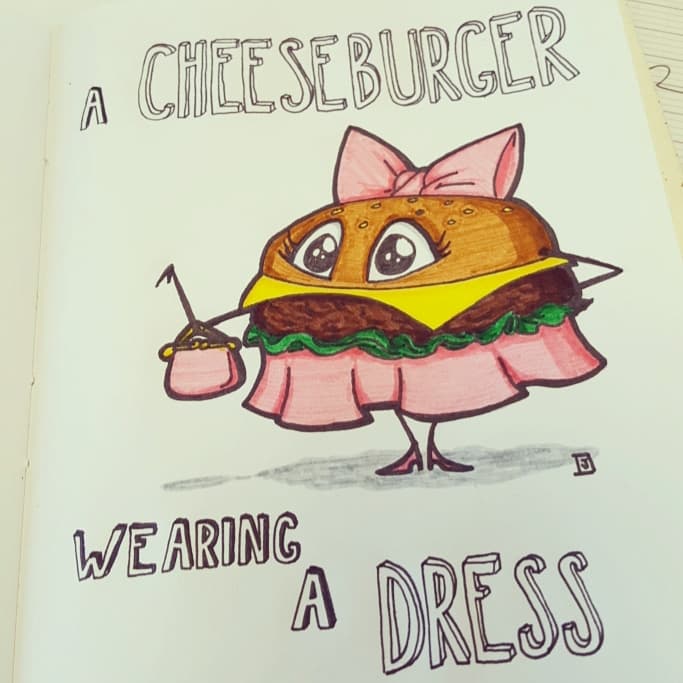 A CHEESEBURGER
WEARING
A DRESS